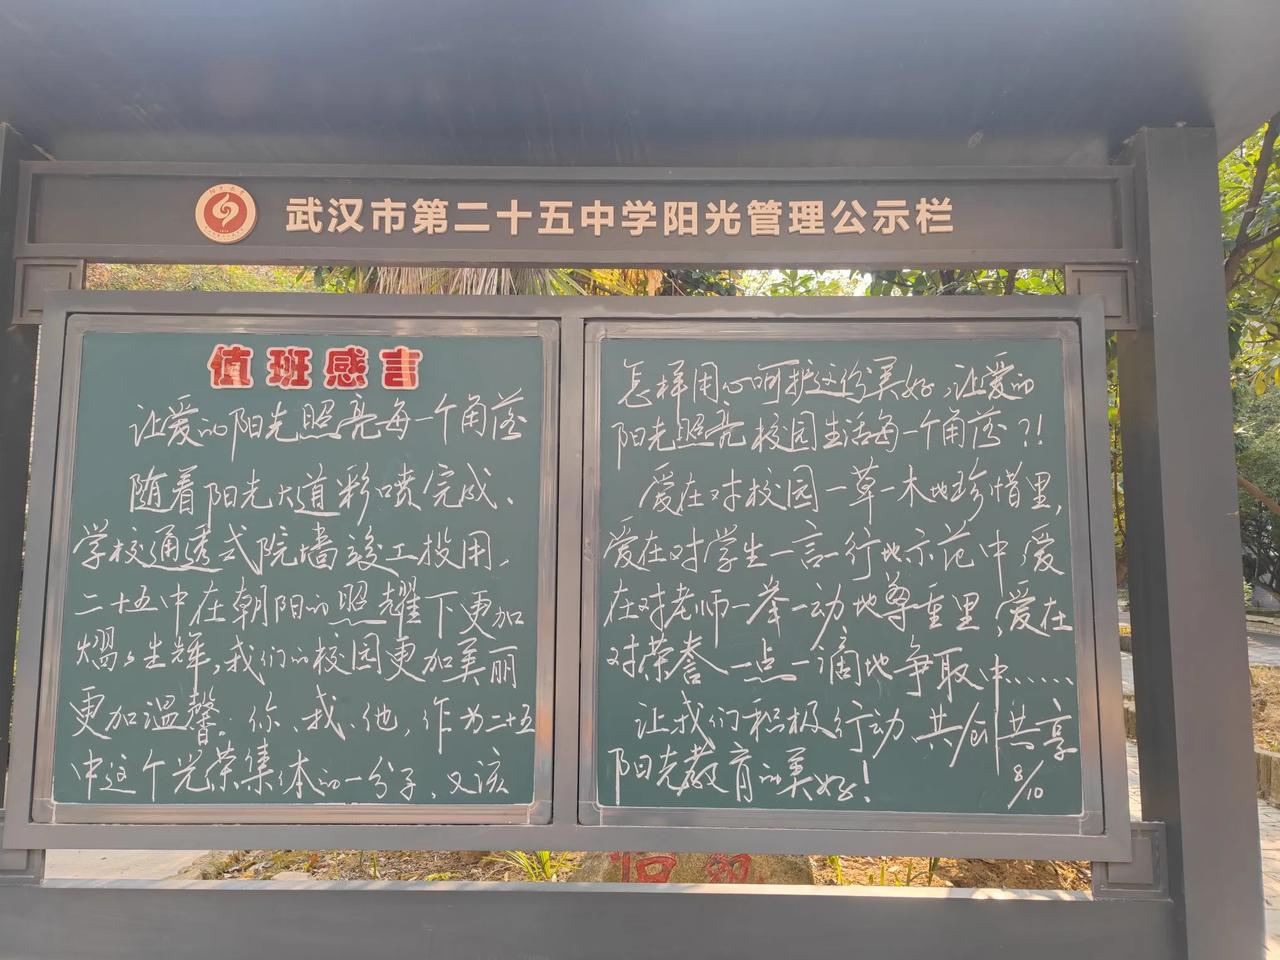 武汉市第二十五中学阳光管理公示栏
值班感言
让爱的阳光照亮每一个角落
随着阳光大道彩喷完成、
学校通透式院墙竣工投用，
二十五中在朝阳的照耀下更加
熠々生辉，我们的校园更加美丽
更加温馨。你、我、他，作为二十五
中这个光荣集体的一分子，又该
怎样用心呵护这份美好，让爱的
阳光照亮校园生活每一个角落？！
爱在对校园一草一木地珍惜里，
爱在对学生一言一行地示范中，爱
在对老师一举一动地尊重里，爱在
对荣誉一点一滴地争取中……
让我们积极行动，共创共享
阳光教育的美好！
8/10